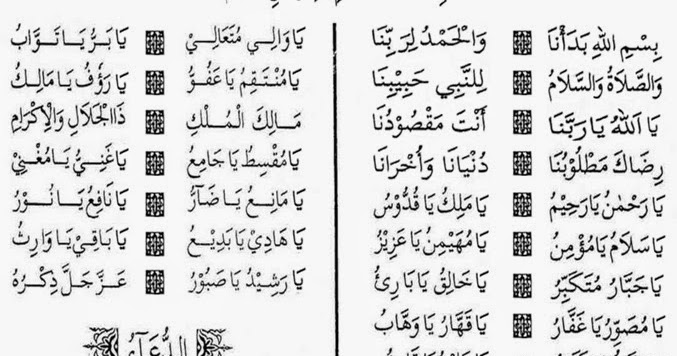 بِسْمِ اللهِ بَدَأْنَا وَالْحَمْدُ لِرَبِّنَا
وَالصَّلَاةُ وَالسَّلَامُ لِلنَّبِي حَبِيْبِنَا
يَا اَللهُ يَارَبَّنَا أَنْتَ مَقْصُوْدُنَا
رِضَاكَ مَطْلُوْبُنَا دُنْيَانَا وَأُخْرَانَا
يَارَحْمٰنُ يَارَحِيْمُ يَامَلِكُ يَاقُدُّوْسُ
يَاسَلَامُ يَامُؤْمِنُ يَامُهَيْمِنُ يَاعَزِيْزُ
يَاجَبَّارُ مُتَكَبِّرُ يَاخَالِقُ يَابَارِئُ
يَامُصَوِّرُ يَاغَفَّارُ يَاقَهَّارُ يَاوَهَّابُ
يَاوَالِي مُتَعَالِيْ يَابَرُّ يَاتَوَّابُ
يَامُنْتَقِمُ يَاعَفُوُّ يَارَؤُفُ يَامَالِكُ
مَالِكَ الْمُلْكِ ذَاالْجَلَالِ وَالْإِكْرَامِ
يَامُقْسِطُ يَاجَامِعُ يَاغَنِيُّ يَامُغْنِيْ
يَامَانِعُ يَاضَآرُّ يَانَافِعُ يَانُوْرُ
يَاهَادِيْ يَابَدِيْعُ يَابَاقِيْ يَاوَارِثُ
يَارَشِيْدُ يَاصَبُوْرُ عَزَّ جَلَّ ذِكْرُهُ
الدُّعَآءُ